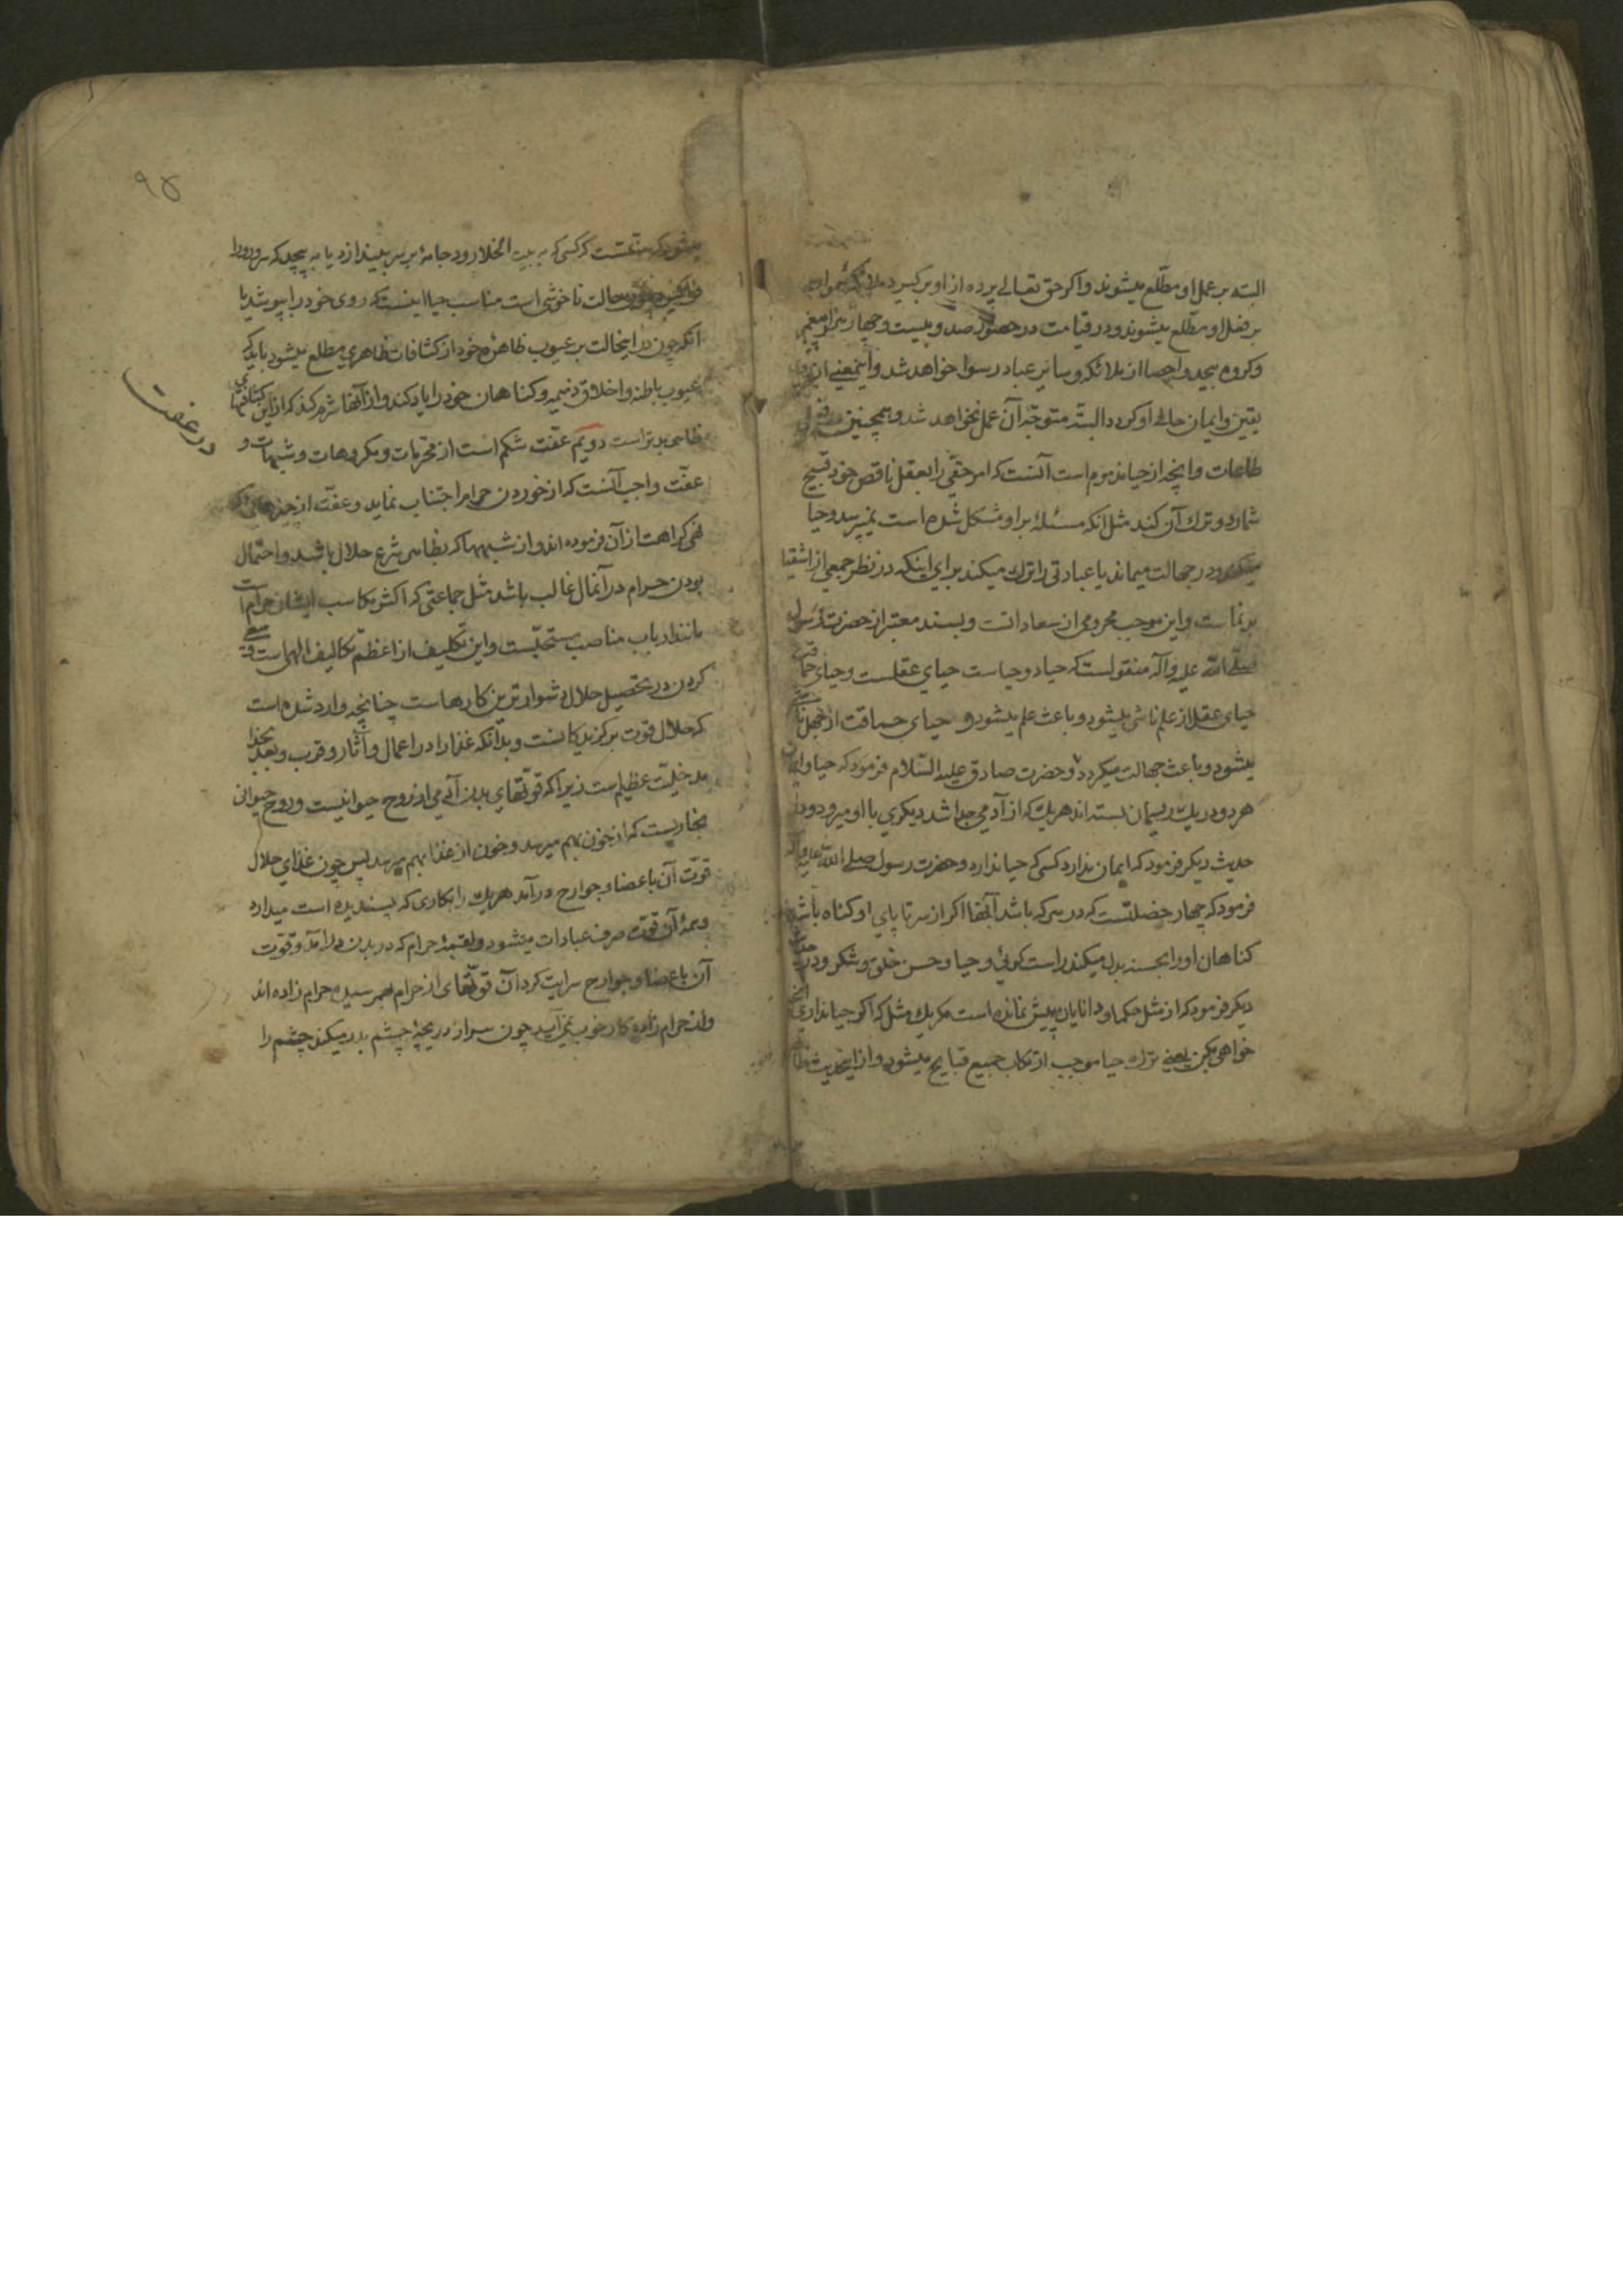 البته بر عمل او مطّلع میشوند واکر حق تعالی پرده از او برکیرد ملائکهٔ سموات
بر فضل او مطّلع میشوند و در قیامت در حضور صد و بیست و چهار هزار پیغمبر
وکروه بیحد و احصا از ملائکه و سائر عباد رسوا خواهد شد و اینمعنی از
یقین وایمان حالی او کردد البتّه متوجّه آن عمل نخواهد شد و همچنین در
طاعات وانچه از حیا مذموم است آنست که امر حقّی را بعقل ناقص خود قبیح
شمارد و ترك آن کند مثل انکه مسئلهٔ بر او مشکل شده است نمیپرسد و حیا
میکند و در جهالت میماند یا عبادتی را ترك میکند برای اینکه در نظر جمعی از اشقیا
بدنماست واین موجب محرومی از سعاداتست و بسند معتبر از حضرت رسول
صلّی الله علیه وآله منقولست که حیا دو حیاست حیای عقلست وحیای حماقت
حیای عقل از علم ناشی میشود و باعث علم میشود و حیای حماقت از جهل ناشی
میشود و باعث جهالت میکردد و حضرت صادق علیه السّلام فرمود که حیا وایمان
هر دو در یك ریسمان بسته اند هر یك که از آدمی جدا شد دیکری با او میرود و در
حدیث دیکر فرمود که ایمان ندارد کسی که حیا ندارد و حضرت رسول صلی الله علیه وآله
فرمود که چهار خصلتست که در هر که باشد آنها اکر از سر تا پای او کناه باشد
کناهان او را بحسنه بدل میکند راست کوئی و حیا و حسن خلق و شکر و در حدیث
دیکر فرمود که از مثل حکما و دانایان پیش نمانده است مکر یك مثل که اکر حیا نداری آنچه
خواهی بکن یعنی ترك حیا موجب ارتکاب جمیع قبایح میشود و از اینحدیث ظاهر
میشود که سنّتست که کسی که به بیت الخلا رود جامهٔ بر سر بیندازد یا به پیچد که سر و رو را
حالت ناخوشی است مناسب حیا اینست که روی خود را بپوشد یا
آنکه چون در اینحالت بر عیوب ظاهره خود از کثافات ظاهری مطلع میشود باید که
عیوب باطنه واخلاق ذمیمه و کناهان خود را یاد کند و از آنها شرم کند که از این کثافتهای
ظاهر بدتر است دویّم عفّت شکم است از محرّمات و مکروهات و شبهات و
عفّت واجب آنست که از خوردن حرام اجتناب نماید و عفّت از چیزهائی که
نهی کراهت از آن فرموده اند و از شبهها که بظاهر شرع حلال باشد و احتمال
بودن حرام در آنمال غالب باشد مثل جماعتی که اکثر مکاسب ایشان حرام است
مانند ارباب مناصب مستحبّست واین تکلیف از اعظم تکالیف الهی است و سعی
کردن در تحصیل حلال دشوارترین کارهاست چنانچه وارد شده است
که حلال قوت برکزیدکانست و بدانکه غذا را در اعمال و آثار و قرب و بعد بخدا
مدخلیّت عظیم است زیرا که قوّتهای بدن آدمی از روح حیوانیست و روح حیوانی
بخاریست که از خون بهم میرسد و خون از غذا بهم میرسد پس چون غذای حلال
قوّت آن باعضا و جوارح درآمد هر یك را بکاری که پسندیده است میدارد
و همهٔ آن قوّت صرف عبادات میشود و لقمهٔ حرام که در بدن درآمد و قوّت
آن باعضا و جوارح سرایت کرد آن قوّتهای از حرام بهم رسیده حرام زاده اند
و از حرام زاده کار خوب نمیآید چون سر از دریچهٔ چشم بدر میکند چشم را
در عفت
۹۵